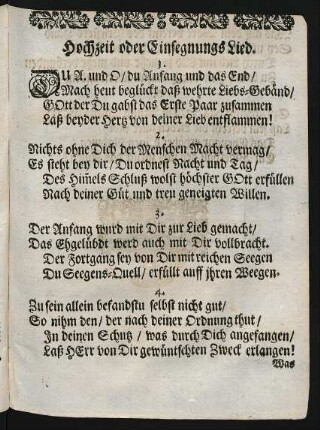 Hochzeit oder Einsegnungs Lied.
1.
DU A. und O/ du Anfang und das End/
Mach heut beglückt daß wehrte Liebs-Gebänd/
GOtt der Du gabst das Erste Paar zusammen
Laß beyder Hertz von deiner Lieb entflammen!
2.
Nichts ohne Dich der Menschen Macht vermag/
Es steht bey dir/ Du ordnest Nacht und Tag/
Des Him̃els Schluß wolst höchster GOtt erfüllen
Nach deiner Güt und treu geneigten Willen.
3.
Der Anfang wurd mit Dir zur Lieb gemacht/
Das Ehgelübdt werd auch mit Dir vollbracht.
Der Fortgang sey von Dir mit reichen Seegen
Du Seegens-Quell/ erfüllt auff jhren Weegen.
4.
Zu sein allein befandstu selbst nicht gut/
So nihm den/ der nach deiner Ordnung thut/
In deinen Schutz/ was durch Dich angefangen/
Laß HErr von Dir gewüntschten Zweck erlangen!
Was